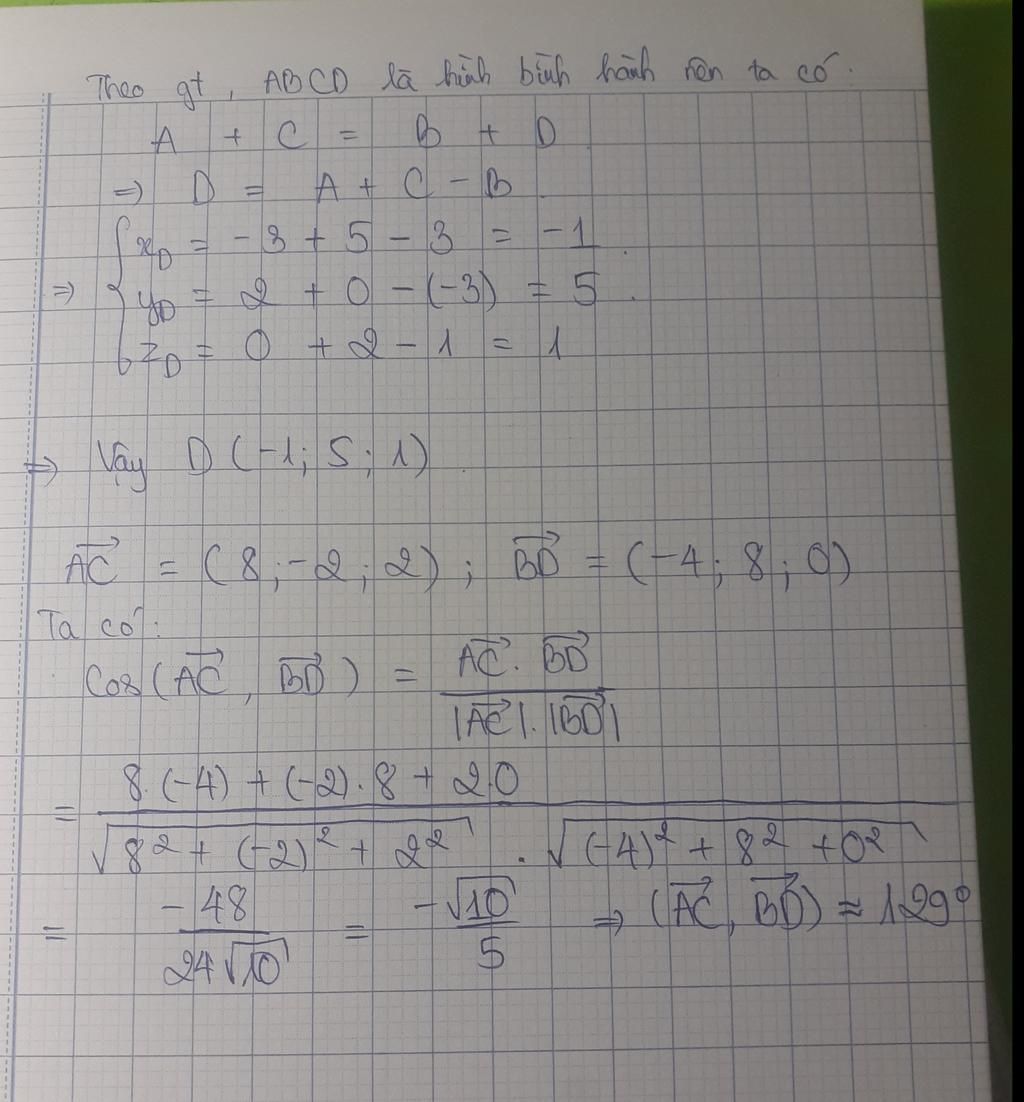 Theo gt, ABCD là hình bình hành nên ta có:
A + C = B + D
=> D = A + C - B
=> { x_D = -3 + 5 - 3 = -1
y_D = 2 + 0 - (-3) = 5
z_D = 0 + 2 - 1 = 1
=> Vậy D (-1; 5; 1)
\overrightarrow{AC} = (8; -2; 2); \overrightarrow{BD} = (-4; 8; 0)
Ta có:
Cos(\overrightarrow{AC}, \overrightarrow{BD}) = \frac{\overrightarrow{AC} . \overrightarrow{BD}}{|\overrightarrow{AC}| . |\overrightarrow{BD}|}
= \frac{8.(-4) + (-2).8 + 2.0}{\sqrt{8^2 + (-2)^2 + 2^2} . \sqrt{(-4)^2 + 8^2 + 0^2}}
= \frac{-48}{24\sqrt{10}} = \frac{-\sqrt{10}}{5} => (\overrightarrow{AC}, \overrightarrow{BD}) ≈ 129°